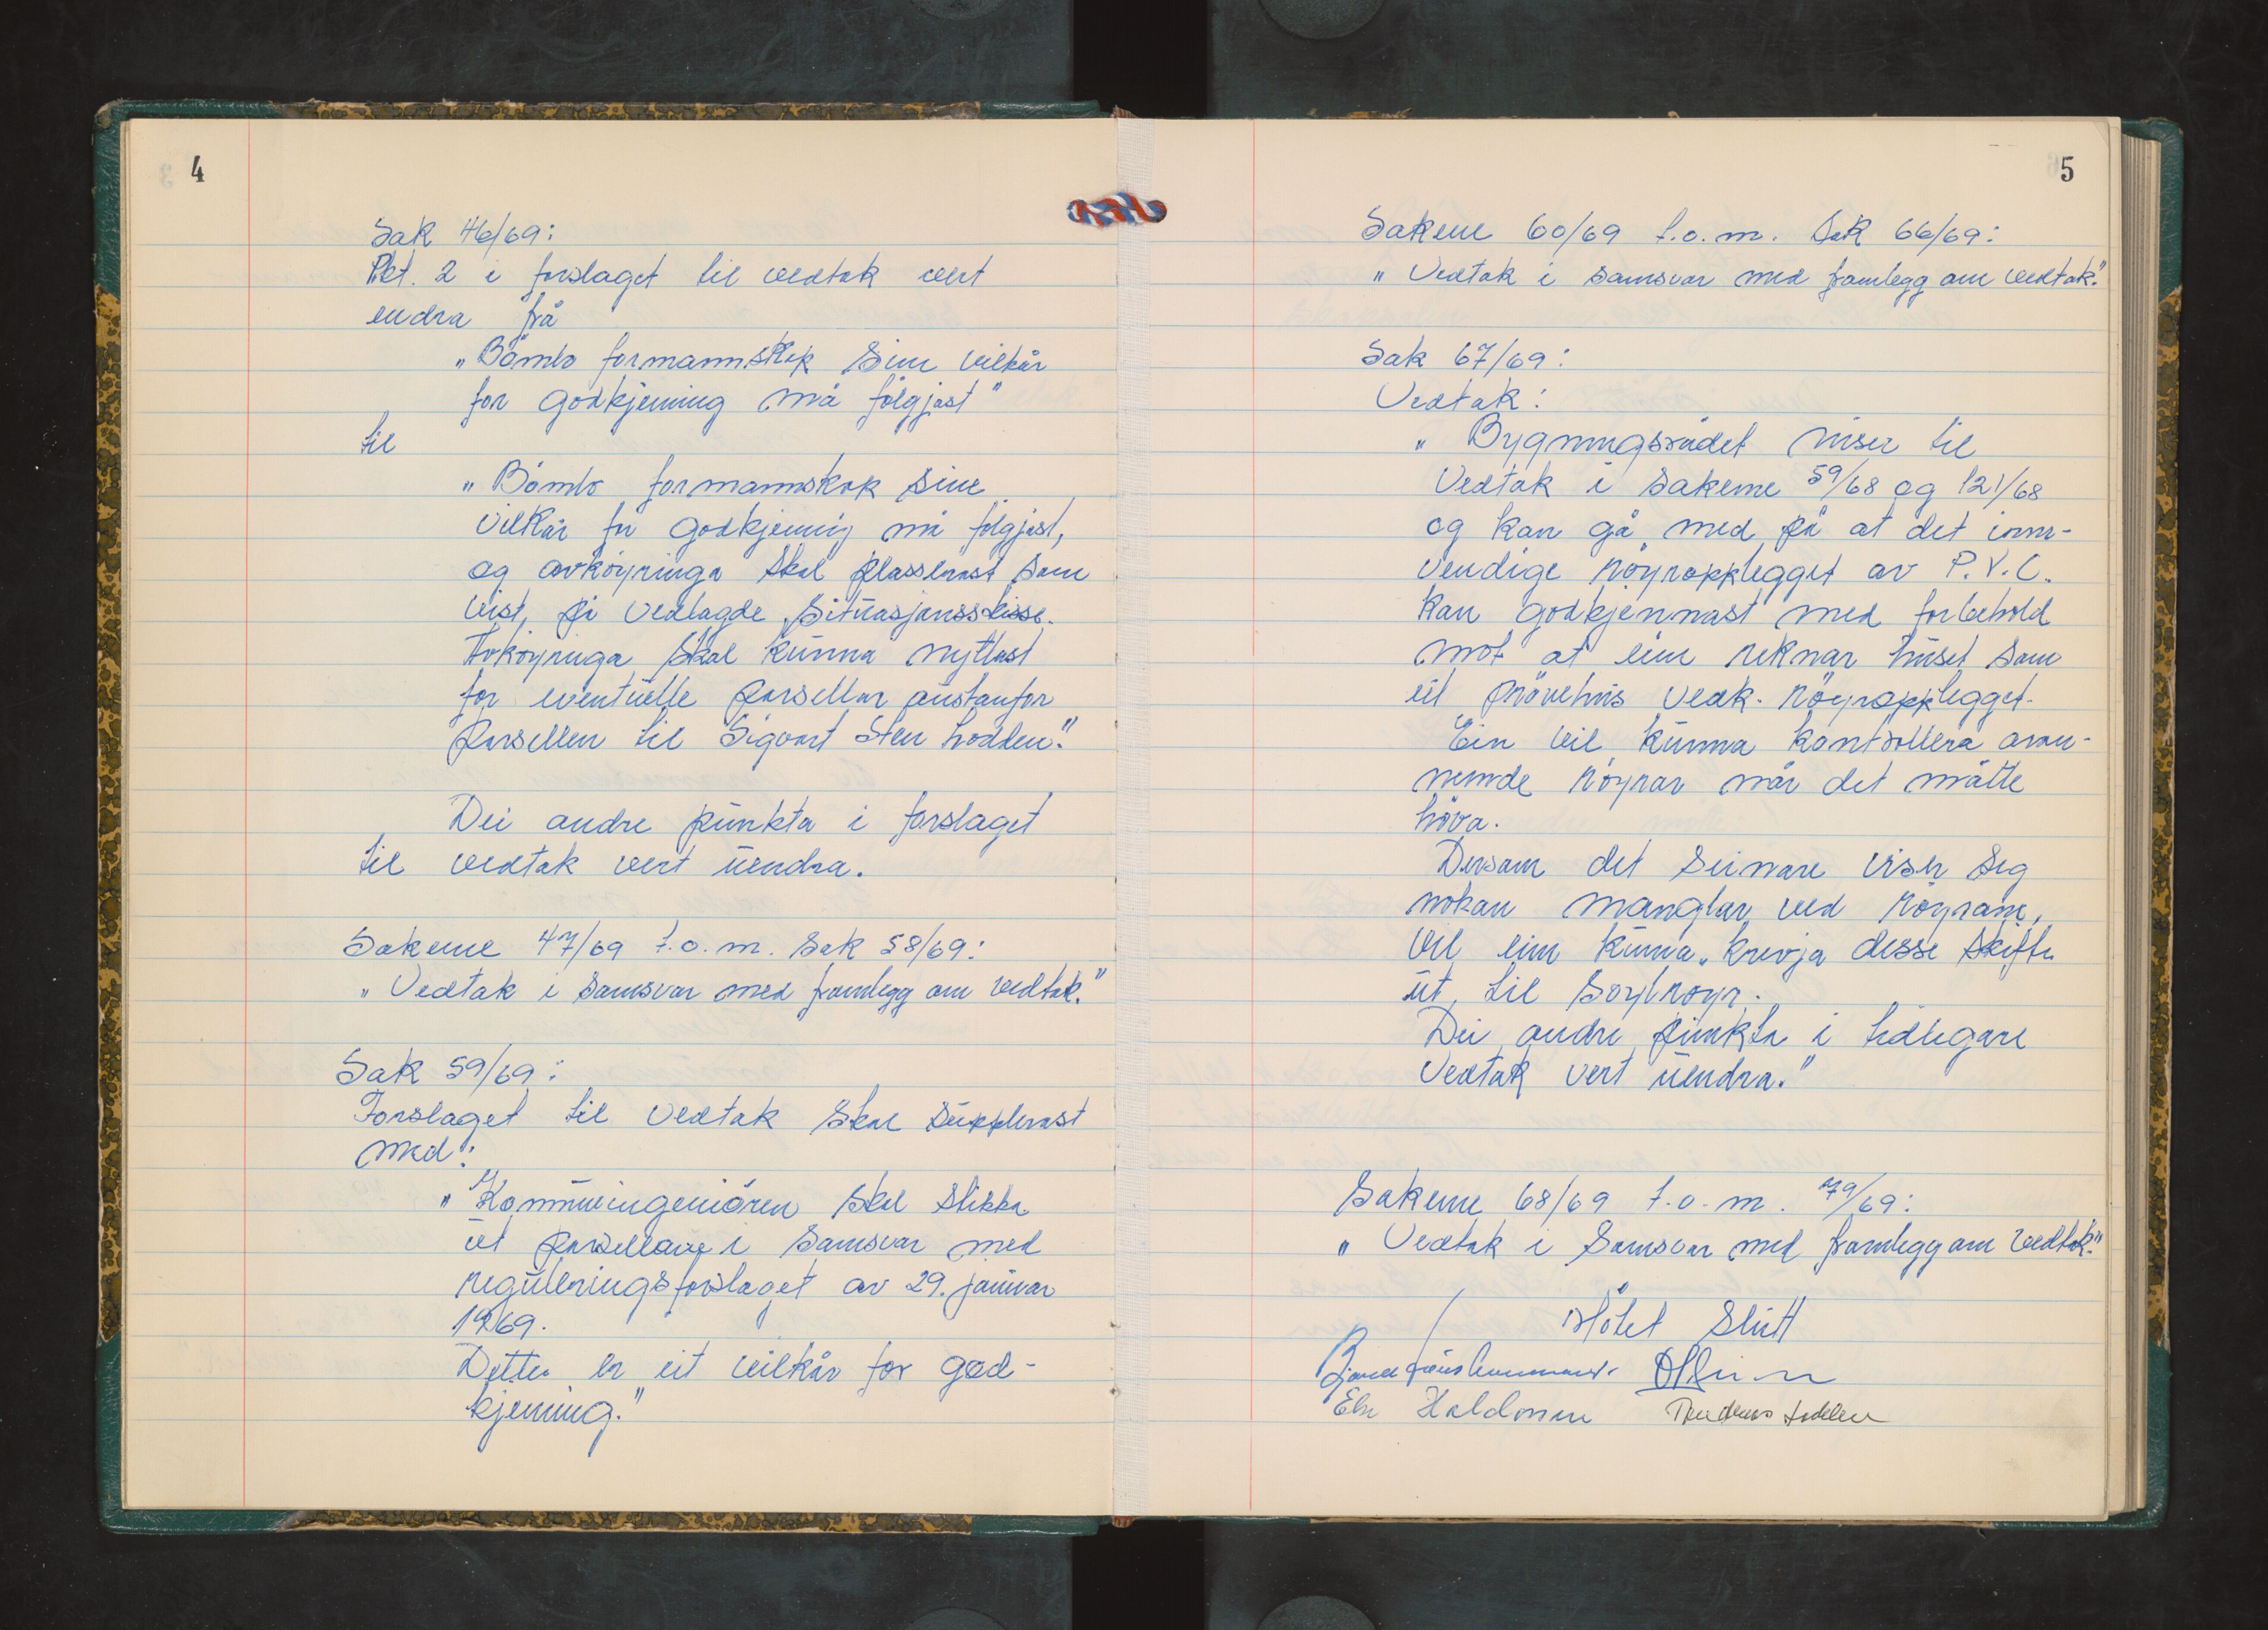 4
Sak 46/69:
Pkt. 2 i forslaget til vedtak vert
endra frå
"Bömlo formannskap sine vilkår
for godkjenning må fölgjast"
til
"Bömlo formannskap sine
vilkår for godkjenning må fölgjast,
og avköyringa skal plasserast som
vist på vedlagde situasjonsskisse.
Avköyringa skal kunna nyttast
for eventuelle parsellar austanfor
parsellen til Sigvart Sten Lodden."
Dei andre punkta i forslaget
til vedtak vert uendra.
Sakene 47/69 t.o.m. sak 58/69:
"Vedtak i samsvar med framlegg om vedtak."
Sak 59/69:
Forslaget til vedtak skal supplerast
med:
"Kommuneingeniören skal stikka
ut parsellane i samsvar med
reguleringsforslaget av 29. januar
1969.
Dette er eit vilkår for god-
kjenning."
5
Sakene 60/69 t.o.m. Sak 66/69:
"Vedtak i samsvar med framlegg om vedtak."
Sak 67/69:
Vedtak:
"Bygningsrådet viser til
vedtak i sakene 59/68 og 121/68
og kan gå med på at det inn-
vendige röyropplegget av P.V.C.
kan godkjennast med forbehold
mot at ein reknar huset som
eit prövehus vedk. röyropplegget.
Ein vil kunna kontrollera ovan-
nemnde röyrar når det måtte
höva.
Dersom det seinare viser seg
nokan manglar ved röyrane,
vil ein kunna krevja desse skifta
ut til soylroyr.
Dei andre punkta i tidlegare
vedtak vert uendra."
Sakene 68/69 t.o.m. 79/69:
"Vedtak i samsvar med framlegg om vedtak."
Mötet slutt
Haldorsen